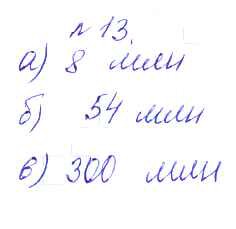 n 13.
а) 8 млн
б) 54 млн
в) 300 млн